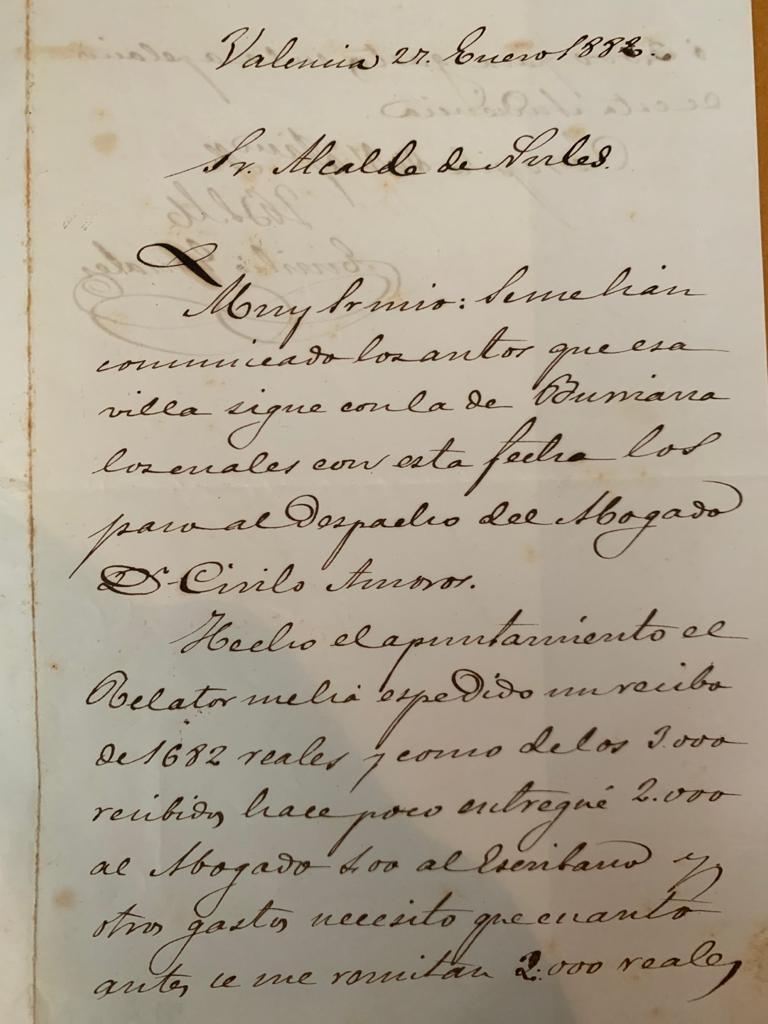 Valencia 27. Enero 1882.
Sr. Alcalde de Nules.
Muy Sr mio: Se me han
comunicado los autos que esa
villa sigue con la de Burriana
los cuales con esta fecha los
paso al Despacho del Abogado
Dn Cirilo Amoros.
Hecho el apuntamiento el
Relator me ha espedido un recibo
de 1682 reales y como de los 3.000
recibidos hace poco entregué 2.000
al Abogado 400 al Escribano y
otros gastos necesito que cuanto
antes se me remitan 2.000 reales,